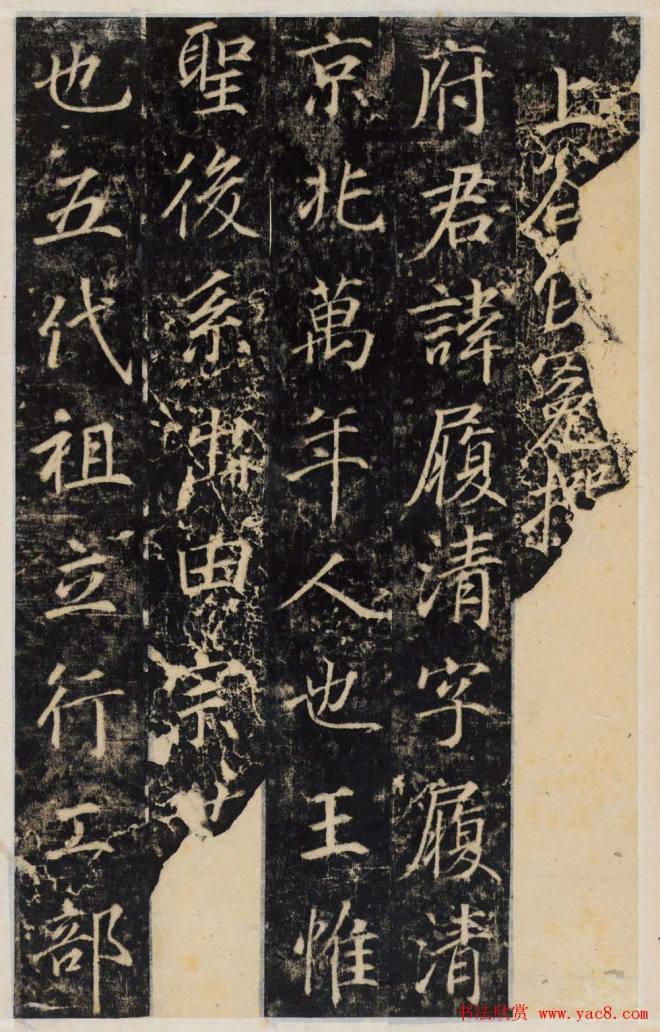 上谷
府君諱履清字履清
京兆萬年人也王惟
聖後系將由宗
也五代祖立行工部
书法欣赏 www.yac8.com